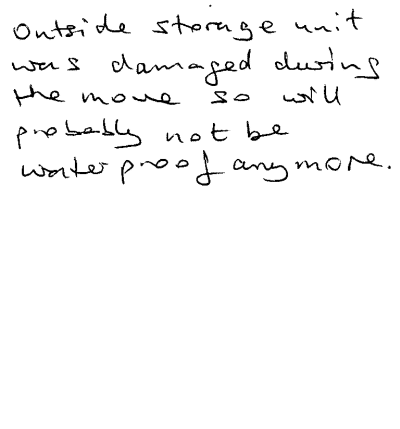 Outside storage unit
was damaged during
the move so will
probably not be
waterproof anymore.